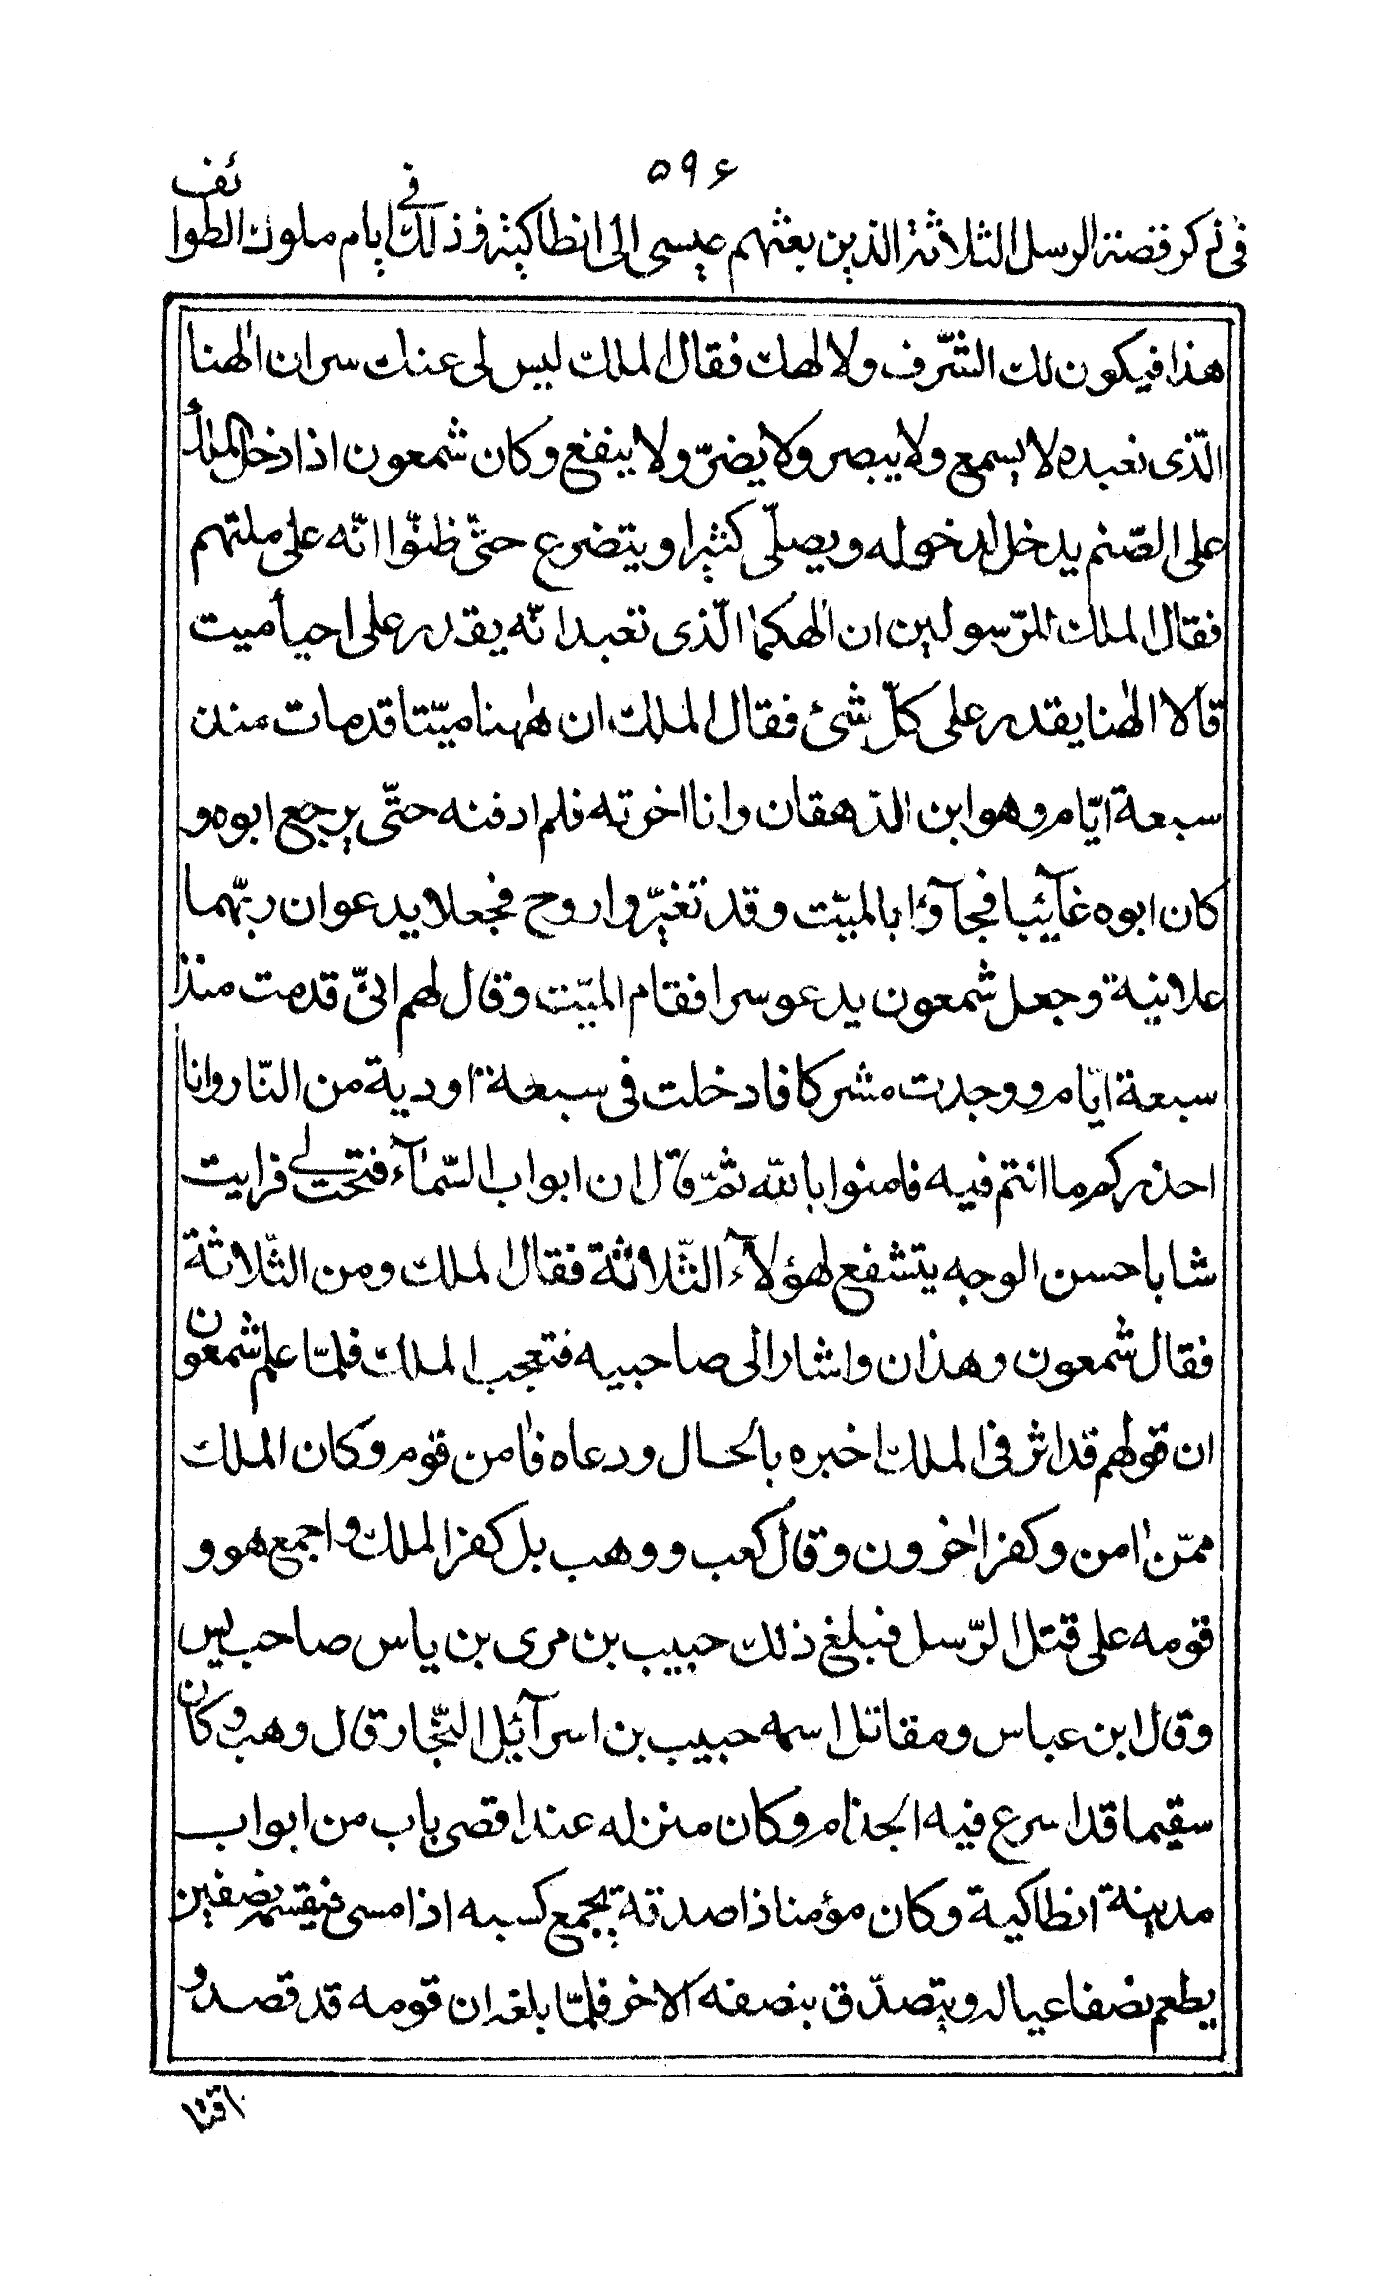 ۵۹۶
فی ذکر قصة الرسل الثلاثة الذین بعثهم عیسی الی انطاکیة و ذلك فی ایام ملوك الطوائف
هذا فیکون لك الشّرف ولا لهك فقال الملك لیس لی عنك سر ان الٰهنا
الّذی نعبده لا یسمع ولا یبصر ولا یضرّ ولا ینفع وکان شمعون اذا دخل الملك
علی الصّنم یدخل لدخوله ویصلّی کثیرا ویتضرع حتّی ظنّوا انّه علی ملتهم
فقال الملك للرّسولین ان الٰهکما الّذی نعبد انّه یقدر علی احیأ میت
قالا الٰهنا یقدر علی کلّ شئ فقال الملك ان هٰهنا میّتا قد مات منذ
سبعة ایّام وهو ابن الدّهقان وانا اخرته فلم ادفنه حتّی یرجع ابوه و
کان ابوه غآئبا فجآؤا بالمیّت وقد تغیّر واروح فجعلا یدعوان ربّهما
علانیة وجعل شمعون یدعو سرا فقام المیّت وقال لهم انّی قد مت منذ
سبعة ایّام ووجدت مشرکا فادخلت فی سبعة اودیة من النّار وانا
احذرکم ما انتم فیه فامنوا باللّه ثمّ قال ان ابواب السّمآء فتحت لی فرایت
شابا حسن الوجه یتشفع لهؤلآء الثّلاثة فقال الملك ومن الثّلاثة
فقال شمعون وهذان واشار الی صاحبیه فتعجب الملك فلمّا علم شمعون
ان قولهم قد اثر فی الملك اخبره بالحال ودعاه فامن قوم وکان الملك
ممّن امن وکفر اخرون وقال کعب ووهب بل کفر الملك واجمع هو و
قومه علی قتل الرّسل فبلغ ذلك حبیب بن مری بن یاس صاحب یس
وقال ابن عباس ومقاتل اسمه حبیب بن اسرآئیل النّجار قال وهب وکان
سقیما قد اسرع فیه الجذام وکان منزله عند اقصی باب من ابواب
مدینة انطاکیة وکان مؤمنا ذا صدقة یجمع کسبه اذا مسی فیقسمه نصفین
یطعم نصفا عیاله ویتصدّق بنصفه الاخر فلمّا بلغه ان قومه قد قصدوا